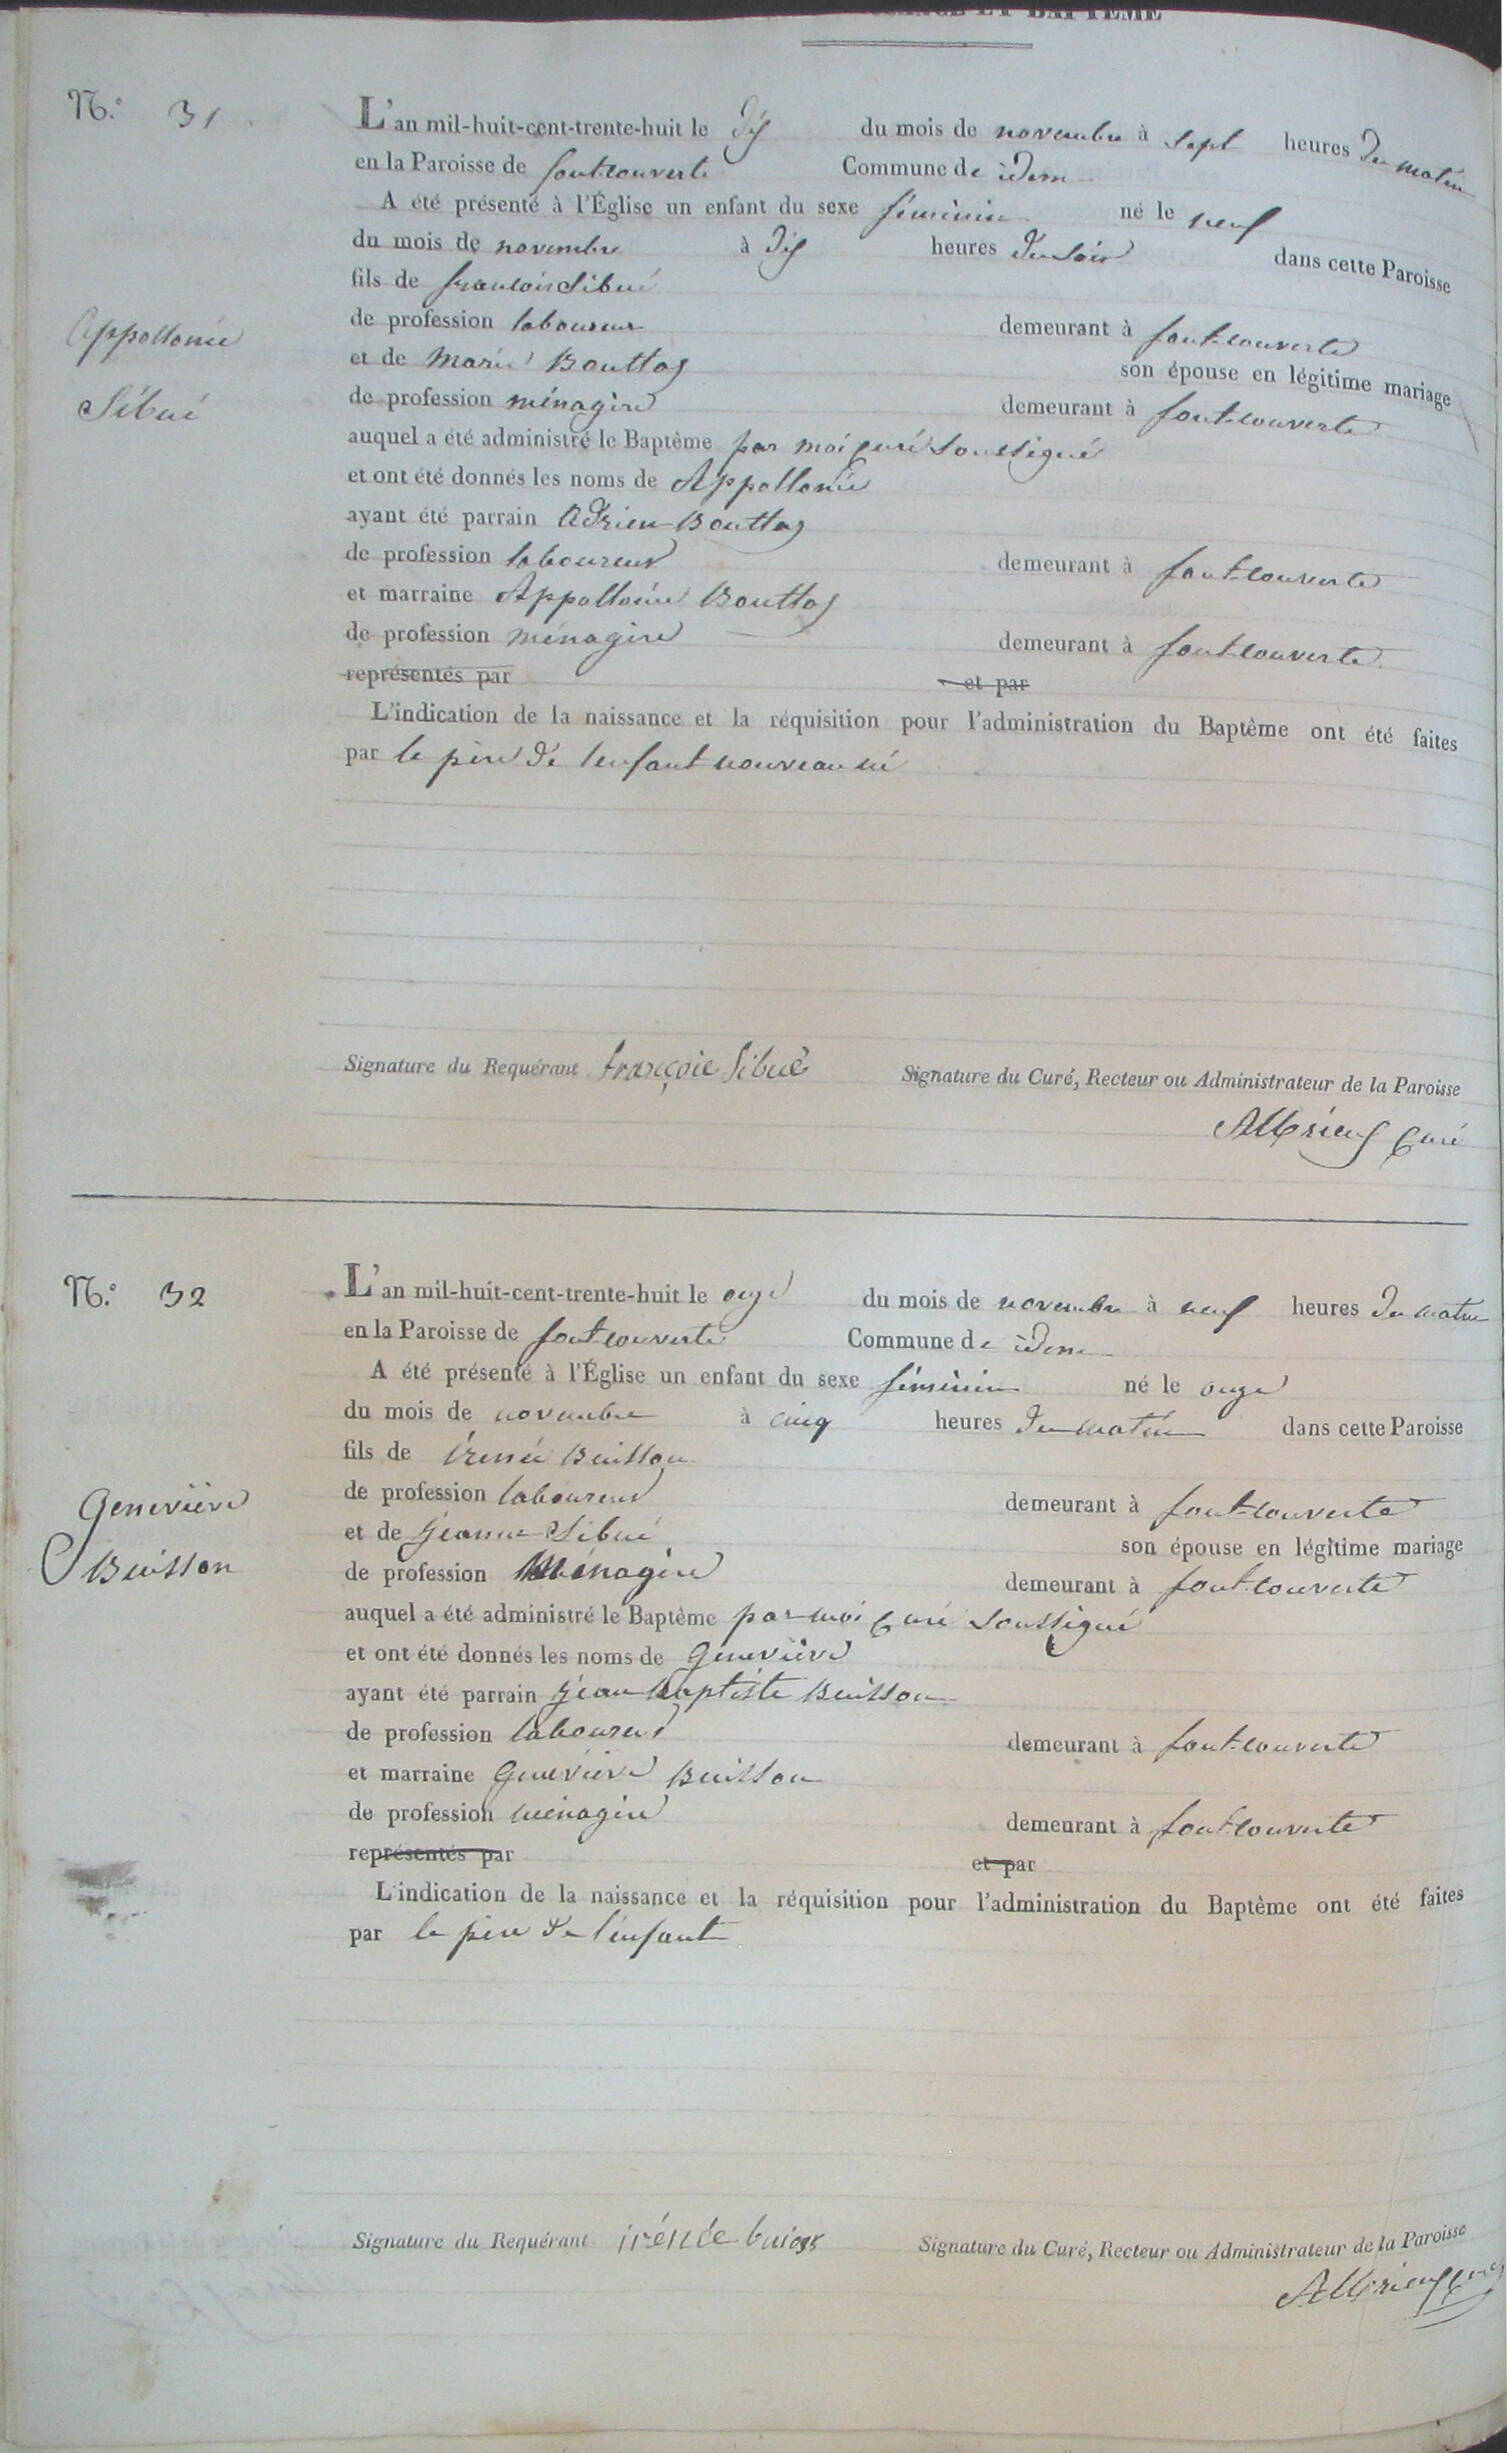 ET BAPTÊME
N.° 31
L'an mil-huit-cent-trente-huit le dix du mois de novembre à sept heures du matin
en la Paroisse de fontcouverte Commune de idem
A été présenté à l'Église un enfant du sexe féminin né le neuf
du mois de novembre à dix heures du soir dans cette Paroisse
fils de francois Sibué
de profession laboureur demeurant à font-couverte
Appollonie
et de Marie Bouttaz son épouse en légitime mariage
Sibué
de profession ménagère demeurant à font-couverte
auquel a été administré le Baptême par moi curé soussigné
et ont été donnés les noms de Appollonie
ayant été parrain Adrien Bouttaz
de profession laboureur demeurant à font-couverte
et marraine Appollonie Bouttaz
de profession ménagère demeurant à font-couverte
représentés par et par
L'indication de la naissance et la réquisition pour l'administration du Baptême ont été faites
par le père de l'enfant nouveau né
Signature du Requérant françois Sibué Signature du Curé, Recteur ou Administrateur de la Paroisse
Albrieux curé
N.° 32
L'an mil-huit-cent-trente-huit le onze du mois de novembre à neuf heures du matin
en la Paroisse de fontcouverte Commune de idem
A été présenté à l'Église un enfant du sexe féminin né le onze
du mois de novembre à cinq heures du matin dans cette Paroisse
fils de irénée Buisson
de profession laboureur demeurant à font-couverte
Geneviève
et de jeanne Sibué son épouse en légitime mariage
Buisson
de profession Ménagère demeurant à font-couverte
auquel a été administré le Baptême par moi curé soussigné
et ont été donnés les noms de Geneviève
ayant été parrain jean Baptiste Buisson
de profession laboureur demeurant à font-couverte
et marraine Geneviève Buisson
de profession ménagère demeurant à font-couverte
représentés par et par
L'indication de la naissance et la réquisition pour l'administration du Baptême ont été faites
par le père de l'enfant
Signature du Requérant irénée Signature du Curé, Recteur ou Administrateur de la Paroisse
Albrieux curé